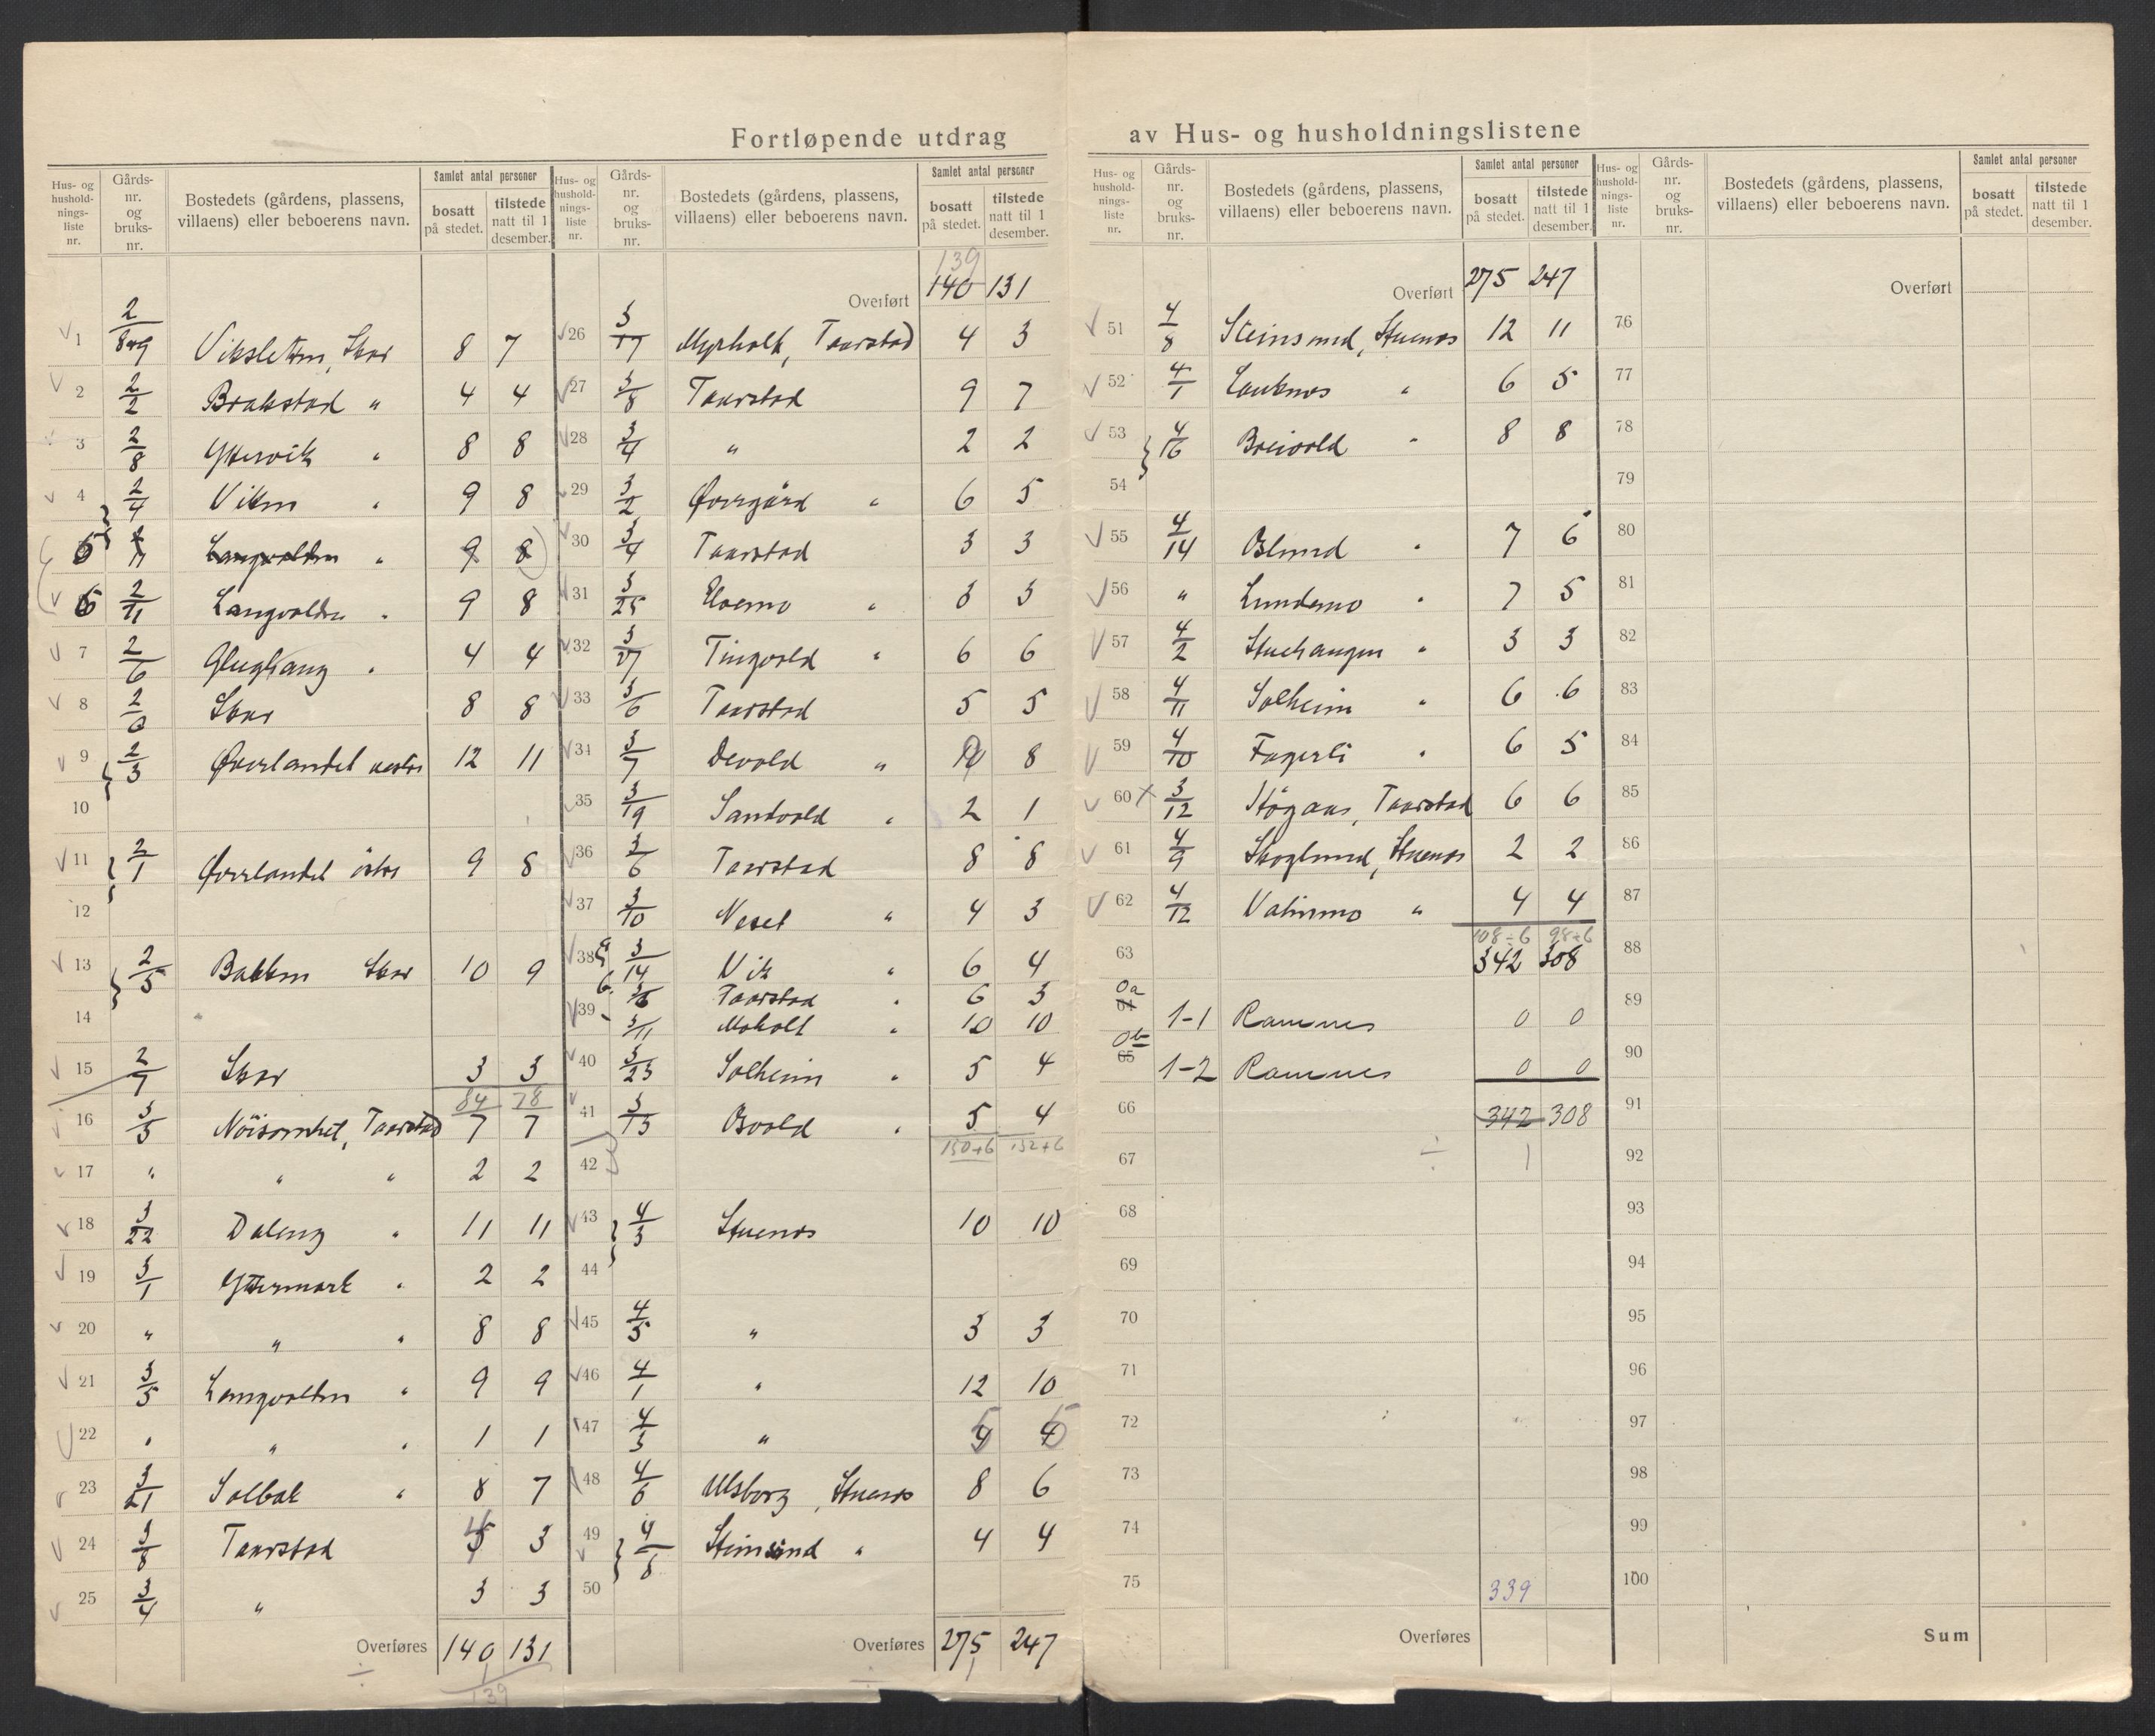 Fortløpende utdrag av Hus- og husholdningslistene
Hus- og husholdningsliste nr. | Gårds-nr. og bruks-nr. | Bostedets (gårdens, plassens, villaens) eller beboerens navn. | Samlet antal personer bosatt på stedet. | tilstede natt til 1 desember.
1 2/8+9 Viksletten, Skar 8 7
2 2/2 Brakstad " 4 4
3 2/8 Yttervik " 8 8
4 2/4 Viken " 9 8
5 Langvolden " 9 8
6 2/11 Langvolden " 9 8
7 2/6 Glughaug " 4 4
8 Skar 8 8
9 2/3 Øverlandet vestre 12 11
10
11 2/1 Øverlandet östre 9 8
12
13 2/5 Bakken Skar 10 9
14
15 2/7 Skar 3 3
84 78
16 3/5 Nöisomhet, Taarstad 7 7
17 " " " 2 2
18 3/22 Daleng " 11 11
19 3/1 Yttermark " 2 2
20 " " " 8 8
21 3/5 Langvolden " 9 9
22 " " " 1 1
23 3/21 Solbak " 8 7
24 3/8 Taarstad 3
25 3/4 " 3 3
Overføres 140 131
139
Hus- og husholdningsliste nr. | Gårds-nr. og bruks-nr. | Bostedets (gårdens, plassens, villaens) eller beboerens navn. | Samlet antal personer bosatt på stedet. | tilstede natt til 1 desember.
139
Overført 140 131
26 3/17 Myrholt, Taarstad 4 3
27 3/8 Taarstad 9 7
28 3/4 " 2 2
29 3/2 Øvergård " 6 5
30 3/4 Taarstad 3 3
31 3/25 Elvemo " 3 3
32 3/27 Tingvold " 6 6
33 3/6 Taarstad 5 5
34 3/7 Devold " 8
35 3/19 Sandvold " 2 1
36 3/6 Taarstad 8 8
37 3/10 Neset " 4 3
38 a 3/14 Vik " 6 4
b 3/6 Taarstad " 6 3
39 3/11 Moholt " 10 10
40 3/23 Solheim " 5 4
41 3/13 Osvold " 5 4
150+6 132+6
42
43 4/3 Stuenes 10 10
44
45 4/5 " 3 3
46 4/1 " 12 10
47 4/3 " 5 5
48 4/6 Ulsborg, Stuenes 8 6
49 4/8 Steinsund " 4 4
50
Overføres 275 247
Hus- og husholdningsliste nr. | Gårds-nr. og bruks-nr. | Bostedets (gårdens, plassens, villaens) eller beboerens navn. | Samlet antal personer bosatt på stedet. | tilstede natt til 1 desember.
Overført 275 247
51 4/8 Steinsund, Stuenes 12 11
52 4/1 Lauknes " 6 5
53 4/16 Breivold " 8 8
54
55 4/14 Oslund " 7 6
56 " Lundemo " 7 5
57 4/2 Stuehaugen " 3 3
58 4/11 Solheim " 6 6
59 4/10 Fagerli " 6 5
60 x 3/12 Högaas, Taarstad 6 6
61 4/9 Skoglund, Stuenes 2 2
62 4/12 " 4 4
108÷6 98÷6
63 342 308
64 0a 1-1 Ramnes 0 0
65 0b 1-2 Ramnes 0 0
66 342 308
67 ÷ 1
68
69
70
71
72
73
74
75 339
Overføres
Hus- og husholdningsliste nr. | Gårds-nr. og bruks-nr. | Bostedets (gårdens, plassens, villaens) eller beboerens navn. | Samlet antal personer bosatt på stedet. | tilstede natt til 1 desember.
Overført
76
77
78
79
80
81
82
83
84
85
86
87
88
89
90
91
92
93
94
95
96
97
98
99
100
Sum